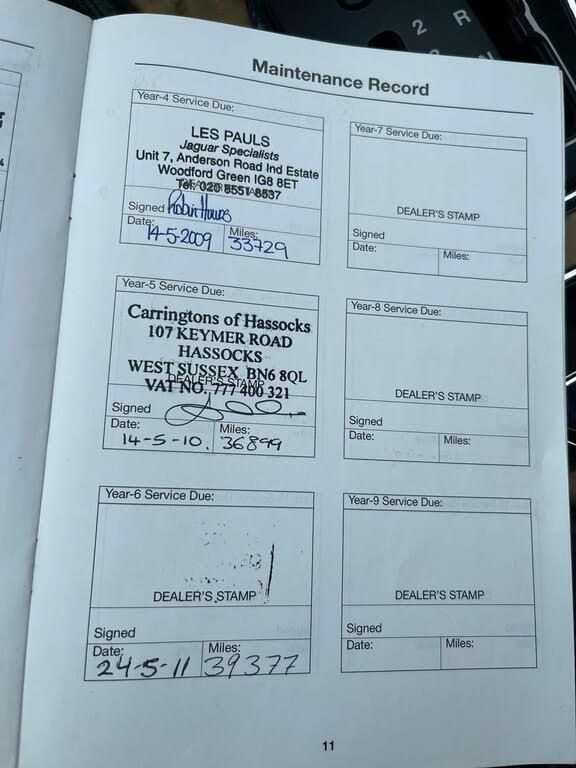 2 R
Maintenance Record
Year-4 Service Due:
LES PAULS
Jaguar Specialists
Unit 7, Anderson Road Ind Estate
Woodford Green IG8 8ET
Tel: 020 8551 8537
DEALER'S STAMP
Signed
Date: Miles:
14-5-2009 33729
Year-5 Service Due:
Carringtons of Hassocks
107 KEYMER ROAD
HASSOCKS
WEST SUSSEX BN6 8QL
DEALER'S STAMP
VAT NO. 777 400 321
Signed
Date: Miles:
14-5-10. 36899
Year-6 Service Due:
DEALER'S STAMP
Signed
Date: Miles:
24-5-11 39377
Year-7 Service Due:
DEALER'S STAMP
Signed
Date: Miles:
Year-8 Service Due:
DEALER'S STAMP
Signed
Date: Miles:
Year-9 Service Due:
DEALER'S STAMP
Signed
Date: Miles:
11